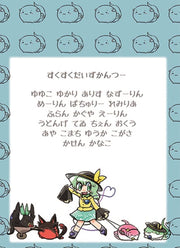 すくすくだいずかんつー
ゆゆこ ゆかり ありす なずーりん
めーりん ぱちゅりー れみりあ
ふらん かぐや えーりん
うどんげ てゐ ちぇん おくう
あや こまち ゆうか こがさ
かせん かなこ